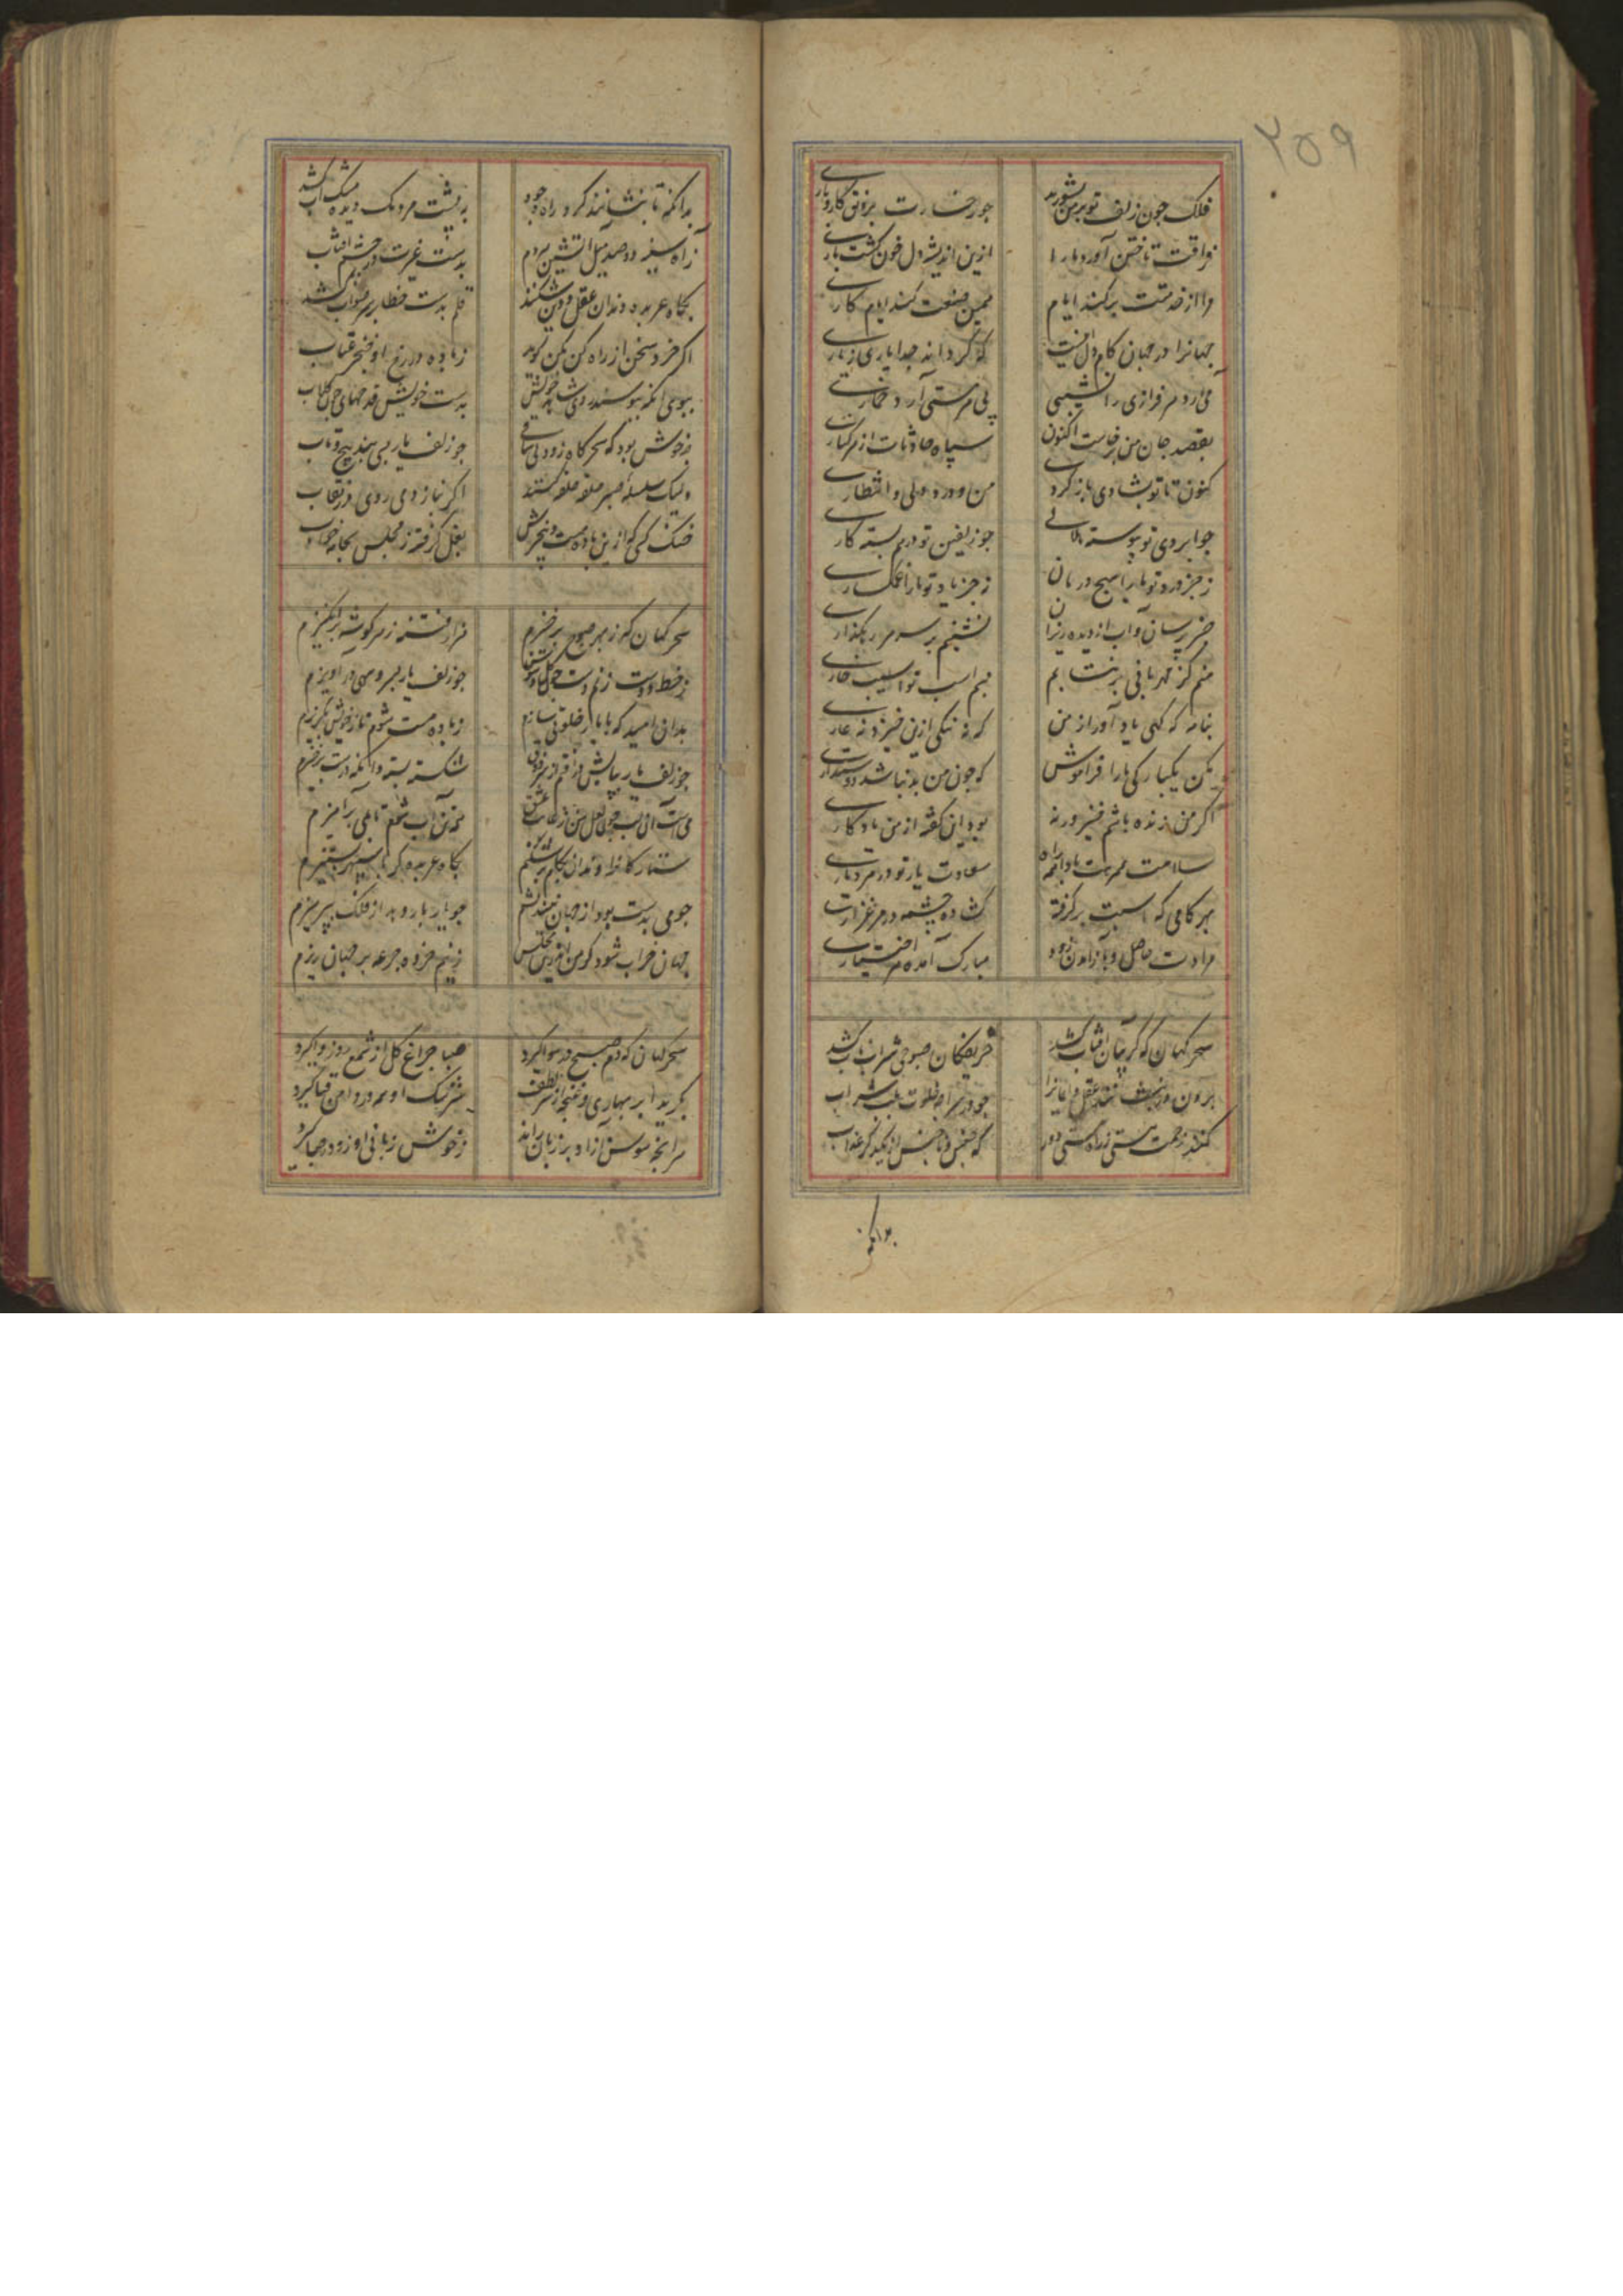 ۲۵۹
فلک چون زلف تو بر من بشورید چو رخسارت برونق کار و باری
فراقت تاختن آورد ما را ازین اندیشه دل خون گشت باری
مرا از خدمتت برکند ایام همین صنعت کند ایام کاری
جهانرا در جهان کام دل اینست که گرداند جدا یاری ز یاری
می آرد سرفرازی را نشیبی پی هر مستی آرد خماری
بقصد جان من برخاست اکنون سپاه حادثات از هر کناری
کنون تا تو بشادی باز کردی من و درد دلی و انتظاری
چو ابروی تو پیوسته چو زلفین تو درهم بسته کاری
ز جز درد تو ما را هیچ درمان ز جز یاد تو ما را غمگساری
خبر پرسان و آب از دیده ریزان نشینم بر سر هر رهگذاری
منم کز مهربانی برنتابم سم اسب تو آسیب خاری
بنامه گه گهی یاد آور از من که نه ننگی ازین خیزد نه عاری
مکن یکبارگی ما را فراموش که چون من بد نباشد دوستداری
اگر من زنده باشم خیر ورنه بود این گفته از من یادگاری
سلامت همرهت بادا بهر راه سعادت یار تو در هر دیاری
بهر کامی که اسبت برگرفته گشاده چشمه در مرغزاری
مرادت حاصل و باز آمدن زود مبارک آمده هر اختیاری
سحرگهان که گریبان آفتاب کشد حریفکان صبوحی شراب ناب کشد
برون چو در سرا خلوت شراب
کنند زحمت هستی ز راه مستی دور که جنس و ناجنس از یکدگر عذاب
بدانکه
بدانکه تا بنشانند گرد راه وجود به پشت مردمک دیده مشک آب کشد
ز آه سینه دو صد میل آتشین هر دم بدست غیرت در چشم آفتاب
بگاه عربده دندان عقل و دین شکنند قلم بدست خطا بر سر صواب کشد
اگر خرد سخن از راه کن مکن گوید ز باده در رخ او خنجر عتاب
ببوی آنکه ببوسند روی شاهد خویش بدست خویش قدحهای چون گلاب
چه خوش بود که سحرگاه زود بی ساقی چو زلف یار بسی پیچ و تاب
ولیک سلسله صبر حلقه حلقه گسند اگر بناز دمی روی در نقاب
خنک کسی که ازین باده مست و بیخبرش بغل گرفته ز مجلس بجامه خواب
سحرگهان که ز بهر صبوح برخیزم هزار فتنه ز هر گوشه برانگیزم
چو زلف یار بسر و سهی در آویزم
بدان امید که با یار خلوتی سازم ز باده مست شوم تا ز خویش بگریزم
چو زلف یار بپایش در افتم از سر ذوق شکسته بسته و آنگه درست برخیزم
ستارگانرا دندان بکام برشکنم بگاه عربده گر با سپهر بستیزم
چو می بدست بود از جهان نیندیشم چو یار یار بود از فلک نپرهیزم
جهان خراب شود گر من اندرین مجلس ز نیم خورده جرعه بر جهان ریزم
سحرگهان که دم صبح در هوا گیرد صبا چراغ گل از شمع روز واگیرد
بگرید ابر بهاری و غنچه از سر لطف سرشک او همه در دامن قبا گیرد
هر آنچه سوسن آزاد بر زبان راند ز خوش زبانی او زود در صبا گیرد